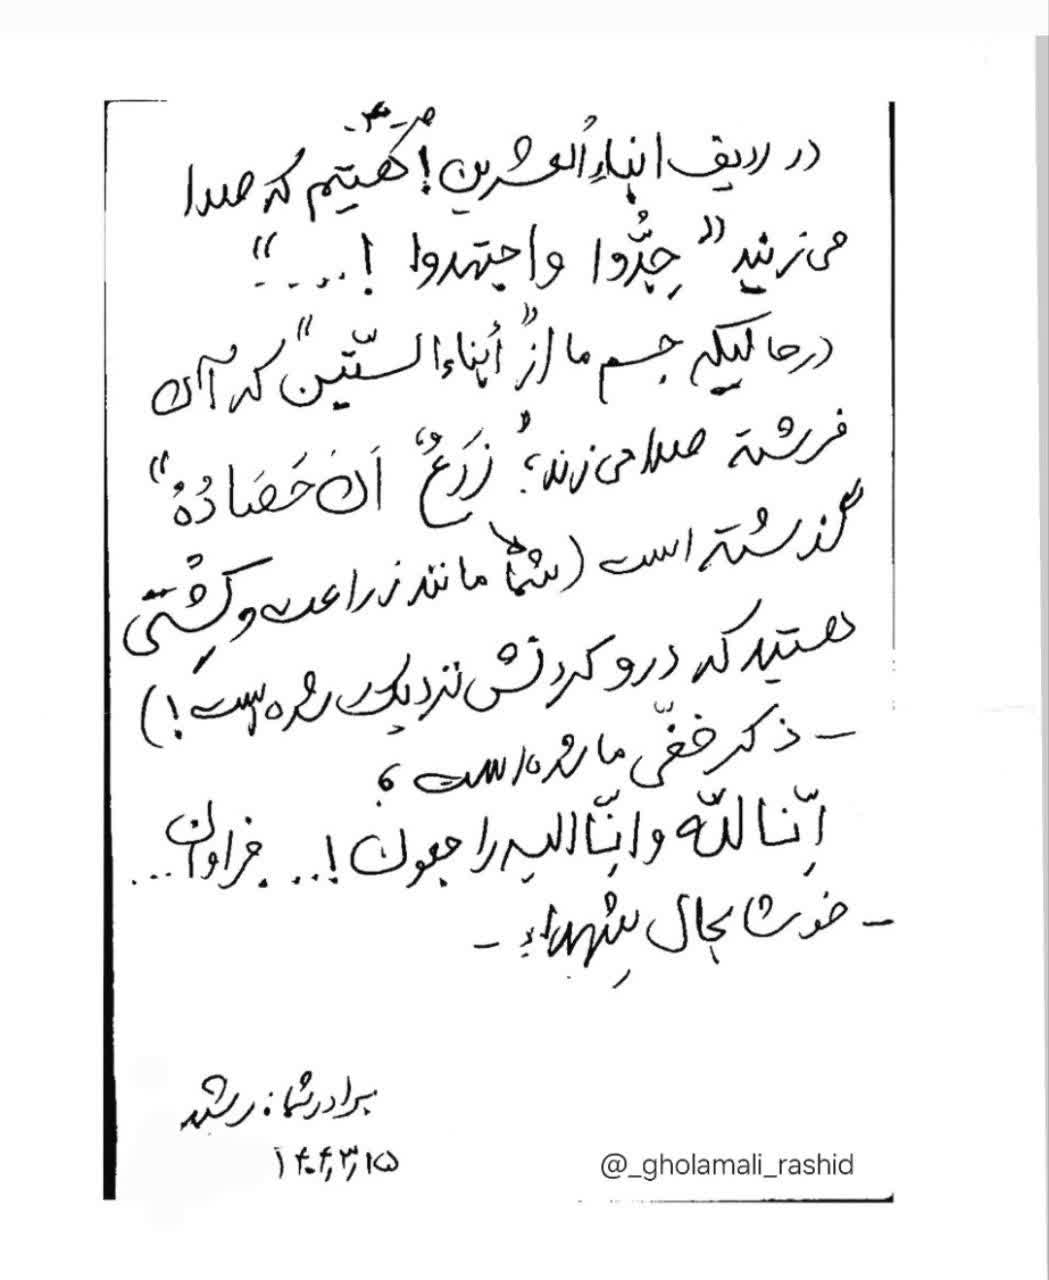 -۳-
در ردیف ابناءِ العشرین! گفتیم که صدا
می‌زنند «جِدُّوا واجتهدوا !....»
درحالیکه جسم ما از «أبناءالستّین» که آن
فرشته صدا می‌زند؛ «زَرَعٌ اَن حَصَادُهُ»
گذشته است (شما مانند زراعت و کِشْتی
هستید که درو کردنش نزدیک شده است!)
- ذکر خفیّ ما شده است؛
اِنّا للّه و اِنّا الیه راجعون!... فراوان...
- خوشا بحال شهداء -
برادر شما: رشید
۱۴۰۴,۳,۱۵
@_gholamali_rashid